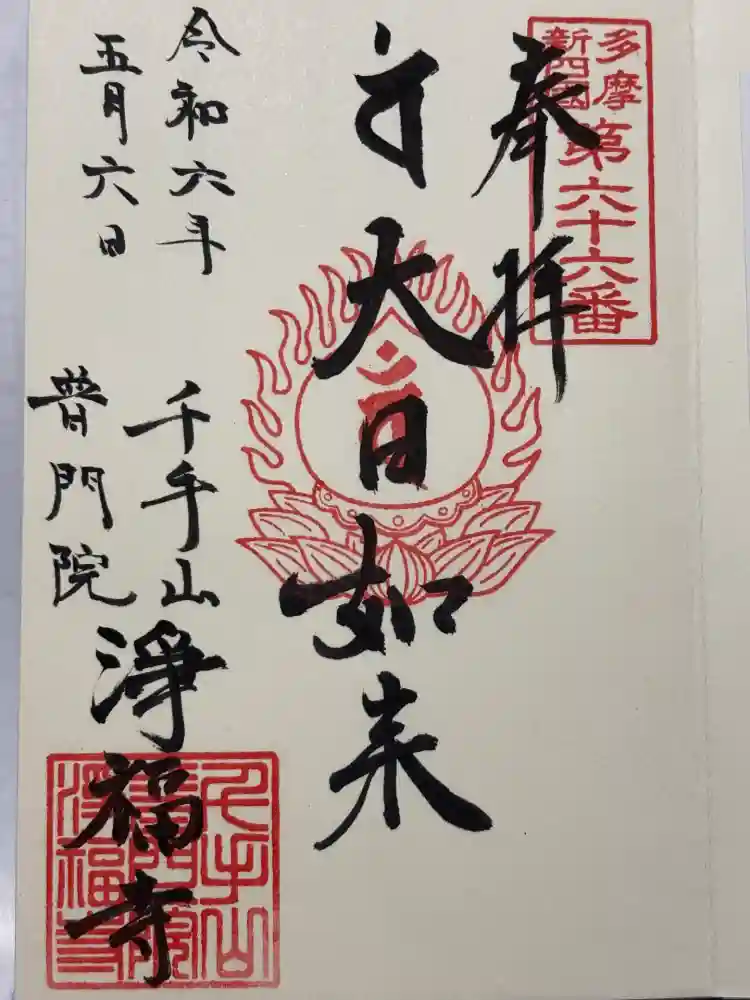 多摩
新四國
第六十六番
奉拝
大日如来
令和六年
五月六日
千手山
普門院
淨福寺
千手山
普門院
淨福寺